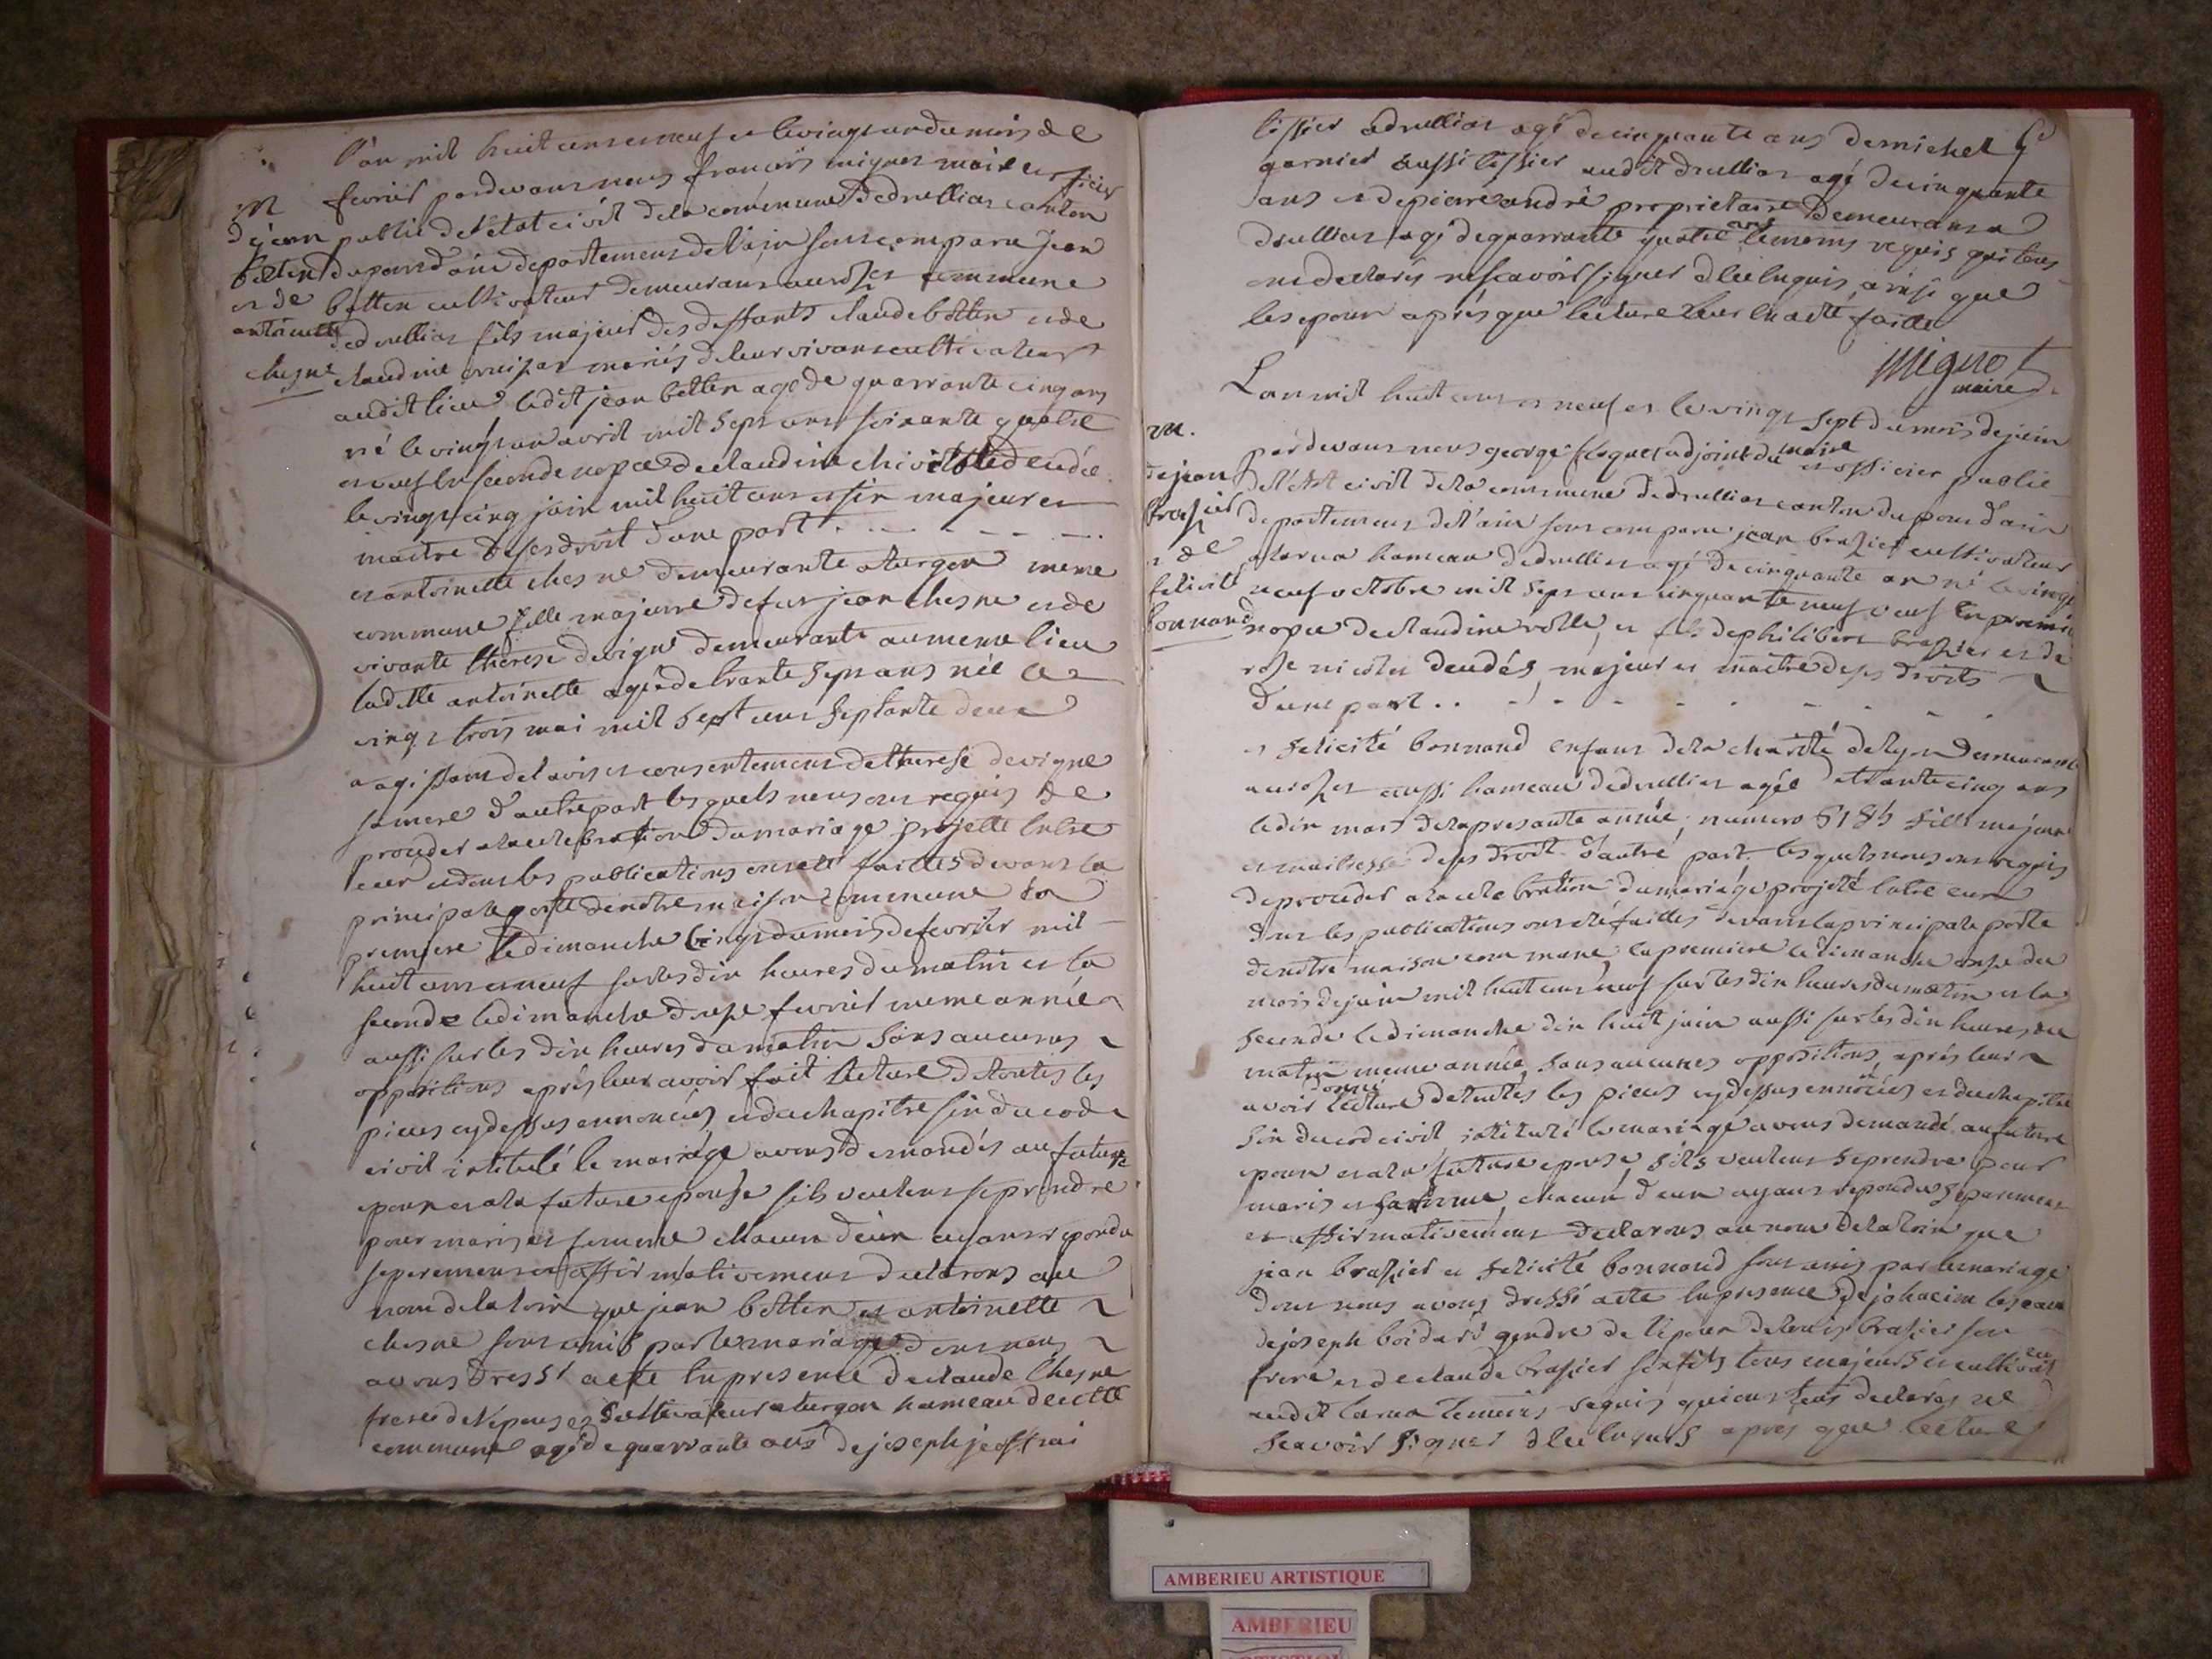 L'an mil huit cens et neuf et le vingt un du mois de
fevrier pardevant nous françois mignot maire et officier
public de l'etat civil de la commune de druillat canton
du pont d'ain departement de l'ain sont comparu jean
betten cultivateur demeurant aux commune
de druillat fils majeur des deffants claude betten et de
claudine mariés de leur vivant cultivateurs
audit lieu ledit jean betten agé de quarrante cinq ans
né le vingt un avril mil sept cens soixante quatre
et veuf en seconde nopce de claudine decedée
le vingt cinq juin mil huit cens et six majeur et
maitre de ses droit d'une part
et antoinette chesne demeurante a turgon meme
commune fille majeure de feu jean chesne et de
vivante therese devigne demeurante au meme lieu
ladette antoinette agée de trante sept ans née le
vingt trois mai mil sept cens septante deux
agissant de l'avis et consentement de therese devigne
sa mere d'autre part lesquels nous ont requis de
proceder a la celebration du mariage projetté entre
eux et dont les publications ont été faittes devant la
principale porte de notre maison commune la
premiere le dimanche du mois de fevrier mil
huit cens et neuf sur les dix heures du matin et la
seconde le dimanche douze fevrier meme année
aussi sur les dix heures du matin sans aucunes
oppositions après leur avoir fait lecture de toutes les
pieces cy dessus ennoncées et du chapitre six du code
civil intitulé le mariage avons demandés au future
epoux et a la future epouse s'ils veulent se prendre
pour maris et femme chacun d'eux ayant repondu
separement et affirmativement declarons au
nom de la loix que jean betten et antoinette
chesne sont unis par le mariage dont nous
avons dressé acte en presence de claude chesne
frere de l'épouse cultivateur a turgon hameau de cette
commune agé de quarrante ans de joseph
M
de jean
betten
et de
antoinette
chesne
tissier a druillat agé de cinquante ans de michel
garnier aussi tissier audit druillat agé de cinquante
ans et de pierre andré proprietaire demeurant a
druillat agé de quarrante quatre ans temoins requis qui tous
ont declarés ne scavoir signer de ce enquis ainsi que
les epoux après que lecture leur en a été faitte
Mignot
maire
L'an mil huit cens et neuf et le vingt sept du mois de juin
pardevant nous george floquet adjoint du maire et officier public
de l'état civil de la commune de druillat canton du pont d'ain
departement de l'ain sont comparu jean brazier cultivateur
a larua hameau de druillat agé de cinquante an né le vingt
neuf octobre mil sept cens cinquante neuf veuf en premie
nopce de claudine rolle et fils de philibert brazier et de
rose nicolas decedés, majeur et maitre de ses droits
d'une part
et felicité bonnand enfant de la charité de lyon demeurante
aussi hameau de druillat agée de trante cinq ans
le dix mars de la presante année, numero 6185 fille majeure
et maitresse de ses droit d'autre part lesquels nous ont requis
de proceder a la celebration du mariage projeté entre eux
dont les publications ont été faittes devant la principale porte
de notre maison commune la premiere le dimanche onze du
mois de juin mil huit cens neuf sur les dix heures du matin et la
seconde le dimanche dix huit juin aussi sur les dix heures du
matin meme année, sans aucunes oppositions, aprés leur
avoir donné lecture de toutes les pieces cy dessus ennoncées et du chapitre
six du code civil intitulé le mariage avons demandé au future
epoux et a la future epouse s'ils veulent se prendre pour
maris et famme, chacun d'eux ayant repondus separement
et affirmativement declarons au nom de la loix que
jean brazier et felicité bonnand sont unis par le mariage
dont nous avons dressé acte en presence de
de joseph gendre de l'epoux de louis brazier son
frere et de claude brazier son fils tous majeurs et cultivateur
audit larua temoins requis qui ont tous declarés ne
scavoir signer de ce enquis apres que lecture
M.
de jean
brazier
et de
felicité
bonnand
AMBERIEU ARTISTIQUE
AMBERIEU
ARTISTIQUE